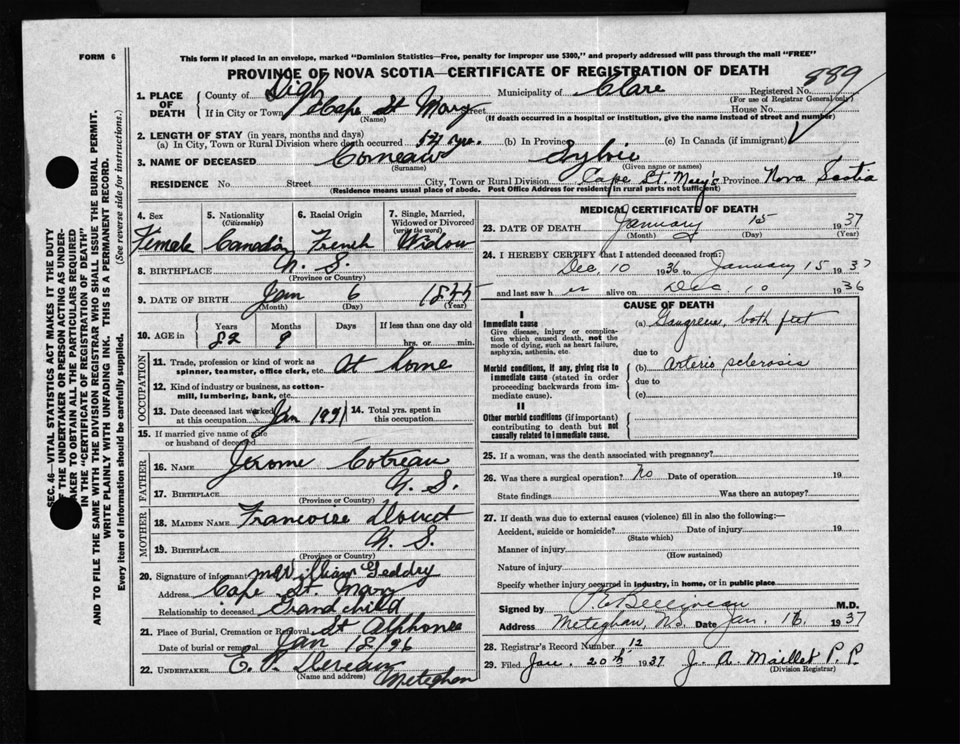 FORM 6
This form if placed in an envelope, marked "Dominion Statistics—Free, penalty for improper use $300," and properly addressed will pass through the mail "FREE"
PROVINCE OF NOVA SCOTIA—CERTIFICATE OF REGISTRATION OF DEATH
889
1. PLACE OF DEATH County of Digby Municipality of Clare Registered No.
(For use of Registrar General only)
If in City or Town Cape St Mary Street House No.
(Name) (If death occurred in a hospital or institution, give the name instead of street and number)
2. LENGTH OF STAY (in years, months and days)
(a) In City, Town or Rural Division where death occurred yrs. (b) In Province (c) In Canada (if immigrant)
3. NAME OF DECEASED Comeau Sylvie
(Surname) (Given name or names)
RESIDENCE No. Street City, Town or Rural Division Cape St. Mary's Province Nova Scotia
(Residence means usual place of abode. Post Office Address for residents in rural parts not sufficient)
4. Sex 5. Nationality (Citizenship) 6. Racial Origin 7. Single, Married, Widowed or Divorced (write the word)
Female Canadian French Widow
8. BIRTHPLACE N. S.
(Province or Country)
9. DATE OF BIRTH Jan 6 18
(Month) (Day) (Year)
10. AGE in Years Months Days If less than one day old
82 9 hrs. or min.
OCCUPATION
11. Trade, profession or kind of work as spinner, teamster, office clerk, etc. At home
12. Kind of industry or business, as cotton-mill, lumbering, bank, etc.
13. Date deceased last worked at this occupation Jan 14. Total yrs. spent in this occupation
15. If married give name of wife or husband of deceased
FATHER
16. NAME Jerome Cotreau
17. BIRTHPLACE N. S.
(Province or Country)
MOTHER
18. MAIDEN NAME Francoise Doucet
19. BIRTHPLACE N. S.
(Province or Country)
20. Signature of informant William Geddry
Address Cape St. Mary
Relationship to deceased Grand child
21. Place of Burial, Cremation or Removal St Alphonse
Date of burial or removal Jan
22. UNDERTAKER E.
(Name and address) Meteghan
MEDICAL CERTIFICATE OF DEATH
23. DATE OF DEATH January 15 1937
(Month) (Day) (Year)
24. I HEREBY CERTIFY that I attended deceased from:
Dec, 10 1936 to January 15 1937
and last saw her alive on Dec 10 1936
CAUSE OF DEATH
I
Immediate cause
Give disease, injury or complication which caused death, not the mode of dying, such as heart failure, asphyxia, asthenia, etc.
(a) Gangrene, both feet
due to
Morbid conditions, if any, giving rise to immediate cause (stated in order proceeding backwards from immediate cause).
(b) Arterio sclerosis
due to
(c)
II
Other morbid conditions (if important) contributing to death but not causally related to immediate cause.
25. If a woman, was the death associated with pregnancy?
26. Was there a surgical operation? No Date of operation 19
State findings Was there an autopsy?
27. If death was due to external causes (violence) fill in also the following:—
Accident, suicide or homicide? Date of injury 19
(State which)
Manner of injury
(How sustained)
Nature of injury
Specify whether injury occurred in industry, in home, or in public place
Signed by M.D.
Address Meteghan, N.S. Date Jan. 16 1937
28. Registrar's Record Number 12
29. Filed Jan. 20th 1937 J. A. Maillet P. P.
(Division Registrar)
SEC. 46—VITAL STATISTICS ACT MAKES IT THE DUTY OF THE UNDERTAKER OR PERSON ACTING AS UNDERTAKER TO OBTAIN ALL THE PARTICULARS REQUIRED IN THE "CERTIFICATE OF REGISTRATION OF DEATH"
AND TO FILE THE SAME WITH THE DIVISION REGISTRAR WHO SHALL ISSUE THE BURIAL PERMIT.
WRITE PLAINLY WITH UNFADING INK. THIS IS A PERMANENT RECORD.
Every item of information should be carefully supplied. (See reverse side for instructions.)